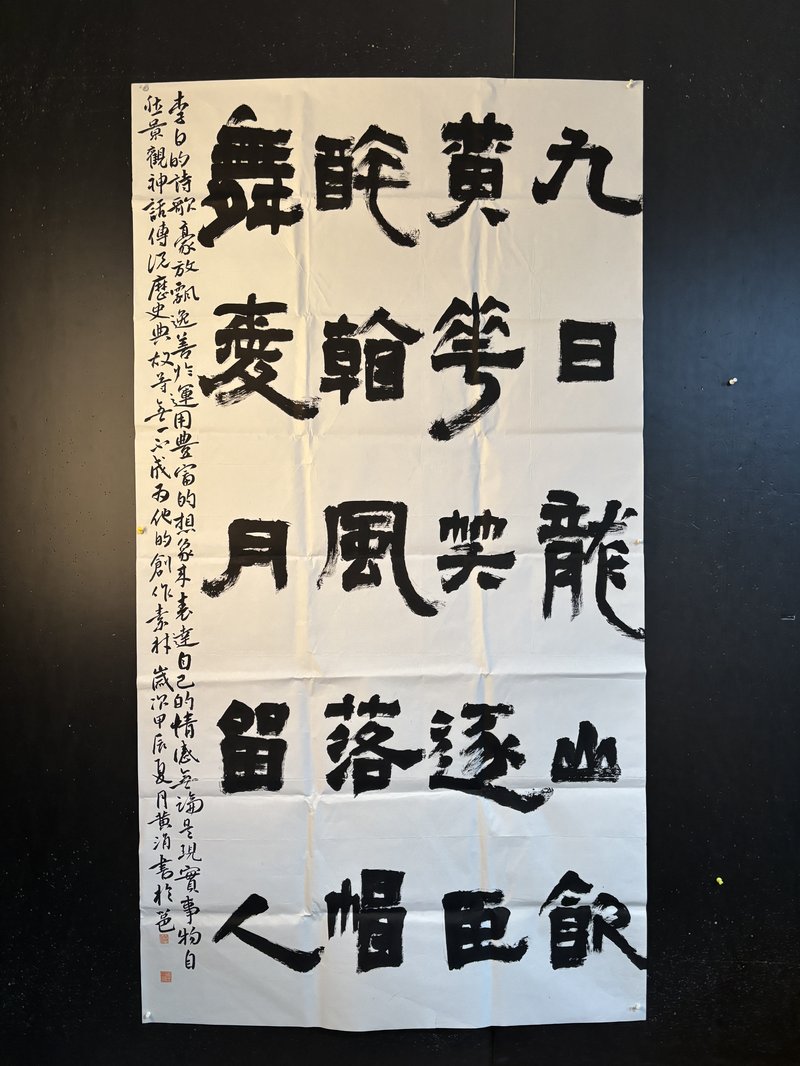 九日龍山飲
黃華笑逐臣
醉看風落帽
舞愛月留人
李白的詩歌豪放飄逸善於運用豐富的想象來表達自己的情感無論是現實事物自
然景觀神話傳說歷史典故等無一不成為他的創作素材 歲次甲辰夏月黃涓書於邕